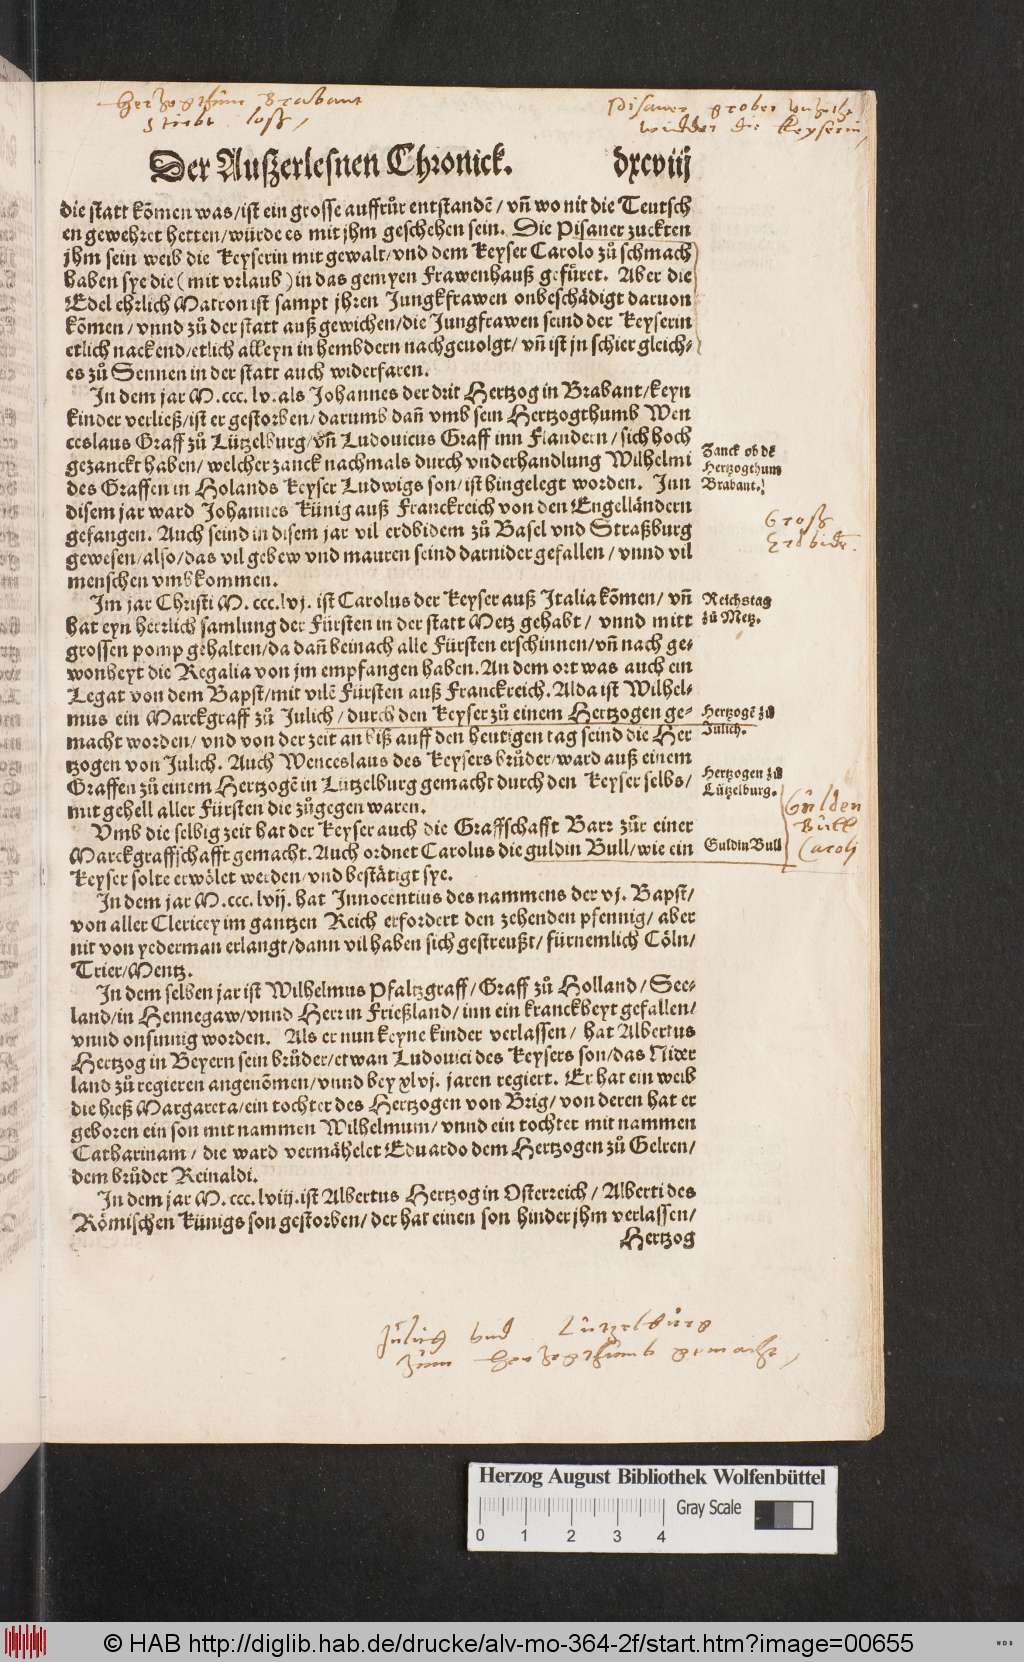 Hertzogthum Brabant
stirbt loß,
Pisaner grober
widder die Keyserin
Der Außerlesnen Chronick. dxcviij
die statt kõmen was/ist ein grosse auffrůr entstandẽ/vñ wo nit die Teutsch
en gewehret hetten/würde es mit jhm geschehen sein. Die Pisaner zuckten
jhm sein weib die Keyserin mit gewalt/vnd dem Keyser Carolo zů schmach
haben sye die (mit vrlaub) in das gemyen Frawenhauß gefůret. Aber die
Edel ehrlich Matron ist sampt jhren Jungkfrawen onbeschådigt daruon
kõmen/vnnd zů der statt auß gewichen/die Jungfrawen seind der Keyserin
etlich nackend/etlich alleyn in hembdern nachgeuolgt/vñ ist jn schier gleich⸗
es zů Sennen in der statt auch widerfaren.
In dem jar M.ccc.lv.als Johannes der drit Hertzog in Brabant/keyn
kinder verließ/ist er gestorben/darumb dañ vmb sein Hertzogthumb Wen
ceslaus Graff zů Lützelburg/vñ Ludouicus Graff inn Flandern/sich hoch
gezanckt haben/welcher zanck nachmals durch vnderhandlung Wilhelmi
des Graffen in Holands Keyser Ludwigs son/ist hingelegt worden. Inn
disem jar ward Johannes Künig auß Franckreich von den Engellåndern
gefangen. Auch seind in disem jar vil erdbidem zů Basel vnd Straßburg
gewesen/also/das vil gebew vnd mauren seind darnider gefallen/vnnd vil
menschen vmbkommen.
Zanck ob dẽ
Hertzogthum
Brabant.
Groß
Erdbidẽ.
Im jar Christi M.ccc.lvj. ist Carolus der Keyser auß Italia kõmen/vñ
hat eyn herrlich samlung der Fürsten in der statt Metz gehabt/vnnd mitt
grossen pomp gehalten/da dañ beinach alle Fürsten erschinnen/vñ nach ge⸗
wonheyt die Regalia von jm empfangen haben. An dem ort was auch ein
Legat von dem Bapst/mit vilẽ Fürsten auß Franckreich. Alda ist Wilhel⸗
mus ein Marckgraff zů Julich/durch den Keyser zů einem Hertzogen ge⸗
macht worden/vnd von der zeit an biß auff den heutigen tag seind die Her
tzogen von Julich. Auch Wenceslaus des Keysers brůder/ward auß einem
Graffen zů einem Hertzogẽ in Lützelburg gemacht durch den Keyser selbs/
mit gehell aller Fürsten die zůgegen waren.
Reichstag
zů Metz.
Hertzogẽ zů
Julich.
Hertzogen zů
Lützelburg.
Vmb die selbig zeit hat der Keyser auch die Graffschafft Barr zůr einer
Marckgraffschafft gemacht. Auch ordnet Carolus die guldin Bull/wie ein
Keyser solte erwölet werden/vnd bestätigt sye.
Guldin Bull
Gulden
Bull
Caroli
In dem jar M.ccc.lvij. hat Innocentius des nammens der vj. Bapst/
von aller Clericey im gantzen Reich erfordert den zehenden pfennig/aber
nit von yederman erlangt/dann vil haben sich gestreußt/fürnemlich Cöln/
Trier/Mentz.
In dem selben jar ist Wilhelmus Pfaltzgraff/Graff zů Holland/See⸗
land/in Hennegaw/vnnd Herr in Frießland/inn ein kranckheyt gefallen/
vnnd onsinnig worden. Als er nun keyne kinder verlassen/hat Albertus
Hertzog in Beyern sein brůder/etwan Ludouici des Keysers son/das Nider
land zů regieren angenõmen/vnnd bey xlvj. jaren regiert. Er hat ein weib
die hieß Margareta/ein tochter des Hertzogen von Brig/von deren hat er
geboren ein son mit nammen Wilhelmum/vnnd ein tochter mit nammen
Catharinam/die ward vermåhelet Eduardo dem Hertzogen zů Gelren/
dem brůder Reinaldi.
In dem jar M.ccc.lviij.ist Albertus Hertzog in Osterreich/Alberti des
Römischen Künigs son gestorben/der hat einen son hinder jhm verlassen/
Hertzog
Julich vnd Lutzelburg
zum Hertzogthumb gemacht,
Herzog August Bibliothek Wolfenbüttel
Gray Scale
0 1 2 3 4
© HAB http://diglib.hab.de/drucke/alv-mo-364-2f/start.htm?image=00655